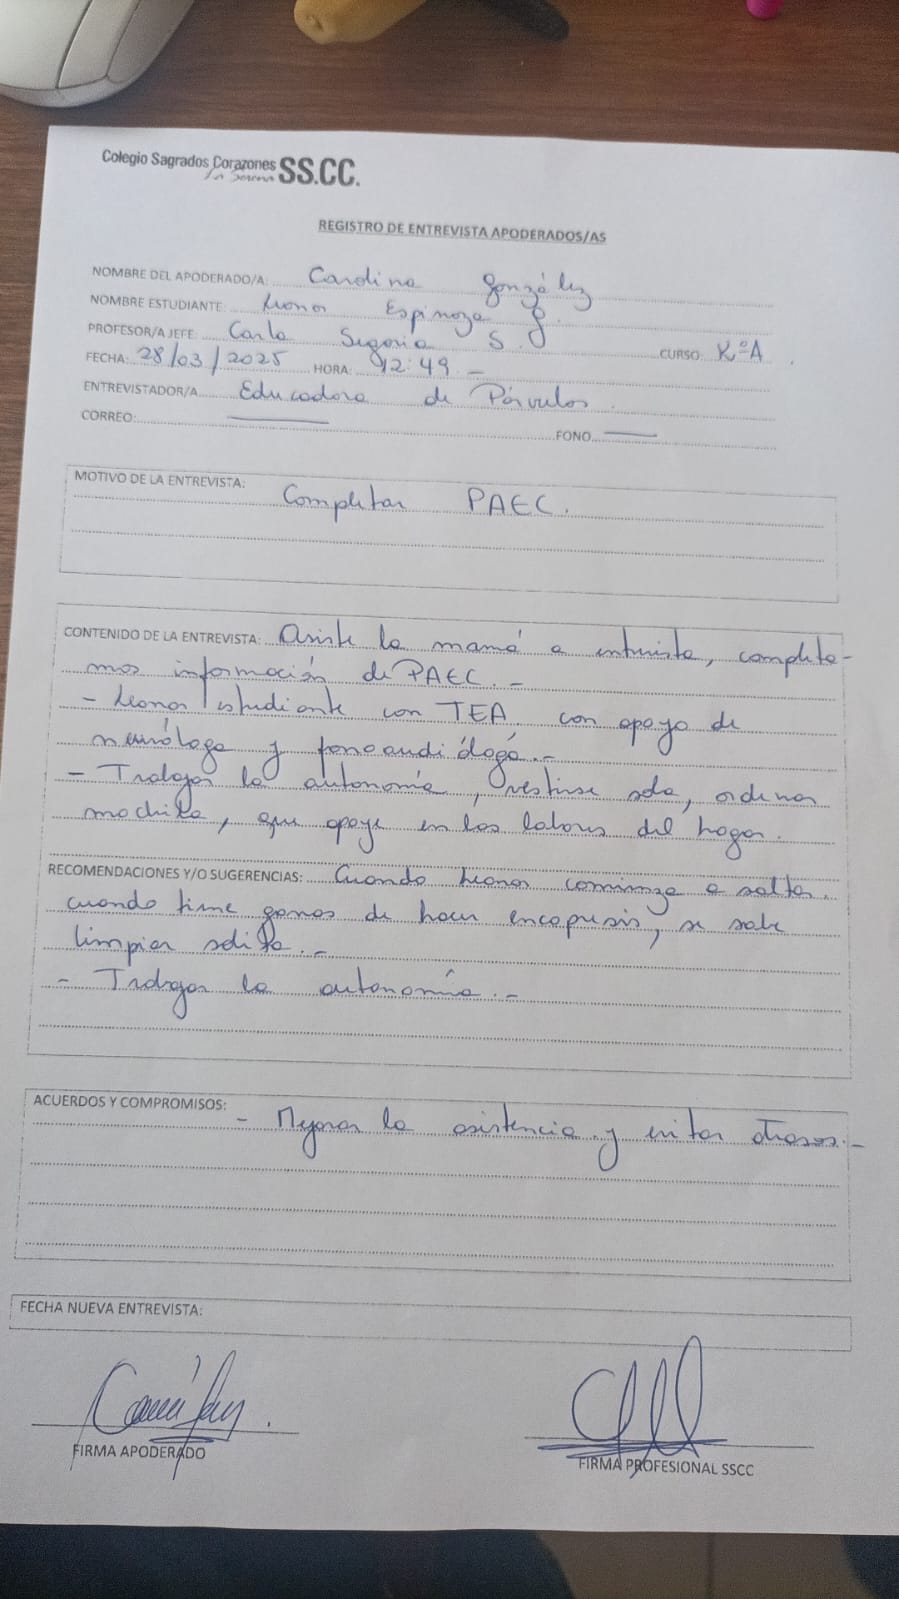 Colegio Sagrados Corazones SS.CC.
La Serena
REGISTRO DE ENTREVISTA APODERADOS/AS
NOMBRE DEL APODERADO/A: Carolina González
NOMBRE ESTUDIANTE: Leonor Espinoza G.
PROFESOR/A JEFE: Carla Segovia S. CURSO: K.ºA.
FECHA: 28/03/2025 HORA: 12:49.-
ENTREVISTADOR/A Educadora de Párvulos.
CORREO: — FONO —
MOTIVO DE LA ENTREVISTA: Completar PAEC.
CONTENIDO DE LA ENTREVISTA: Asiste la mamá a entrevista, completa-
mos información de PAEC.-
- Leonor estudiante con TEA, con apoyo de
neuróloga y fonoaudióloga.-
- Trabajar la autonomía, vestirse sola, ordenar
mochila, que apoye en las labores del hogar.
RECOMENDACIONES Y/O SUGERENCIAS: Cuando Leonor comienza a saltar.
cuando tiene ganas de hacer encopresis, se sabe
limpiar solita.-
- Trabajar la autonomía.-
ACUERDOS Y COMPROMISOS:
- Mejorar la asistencia y evitar atrasos.-
FECHA NUEVA ENTREVISTA:
FIRMA APODERADO
FIRMA PROFESIONAL SSCC